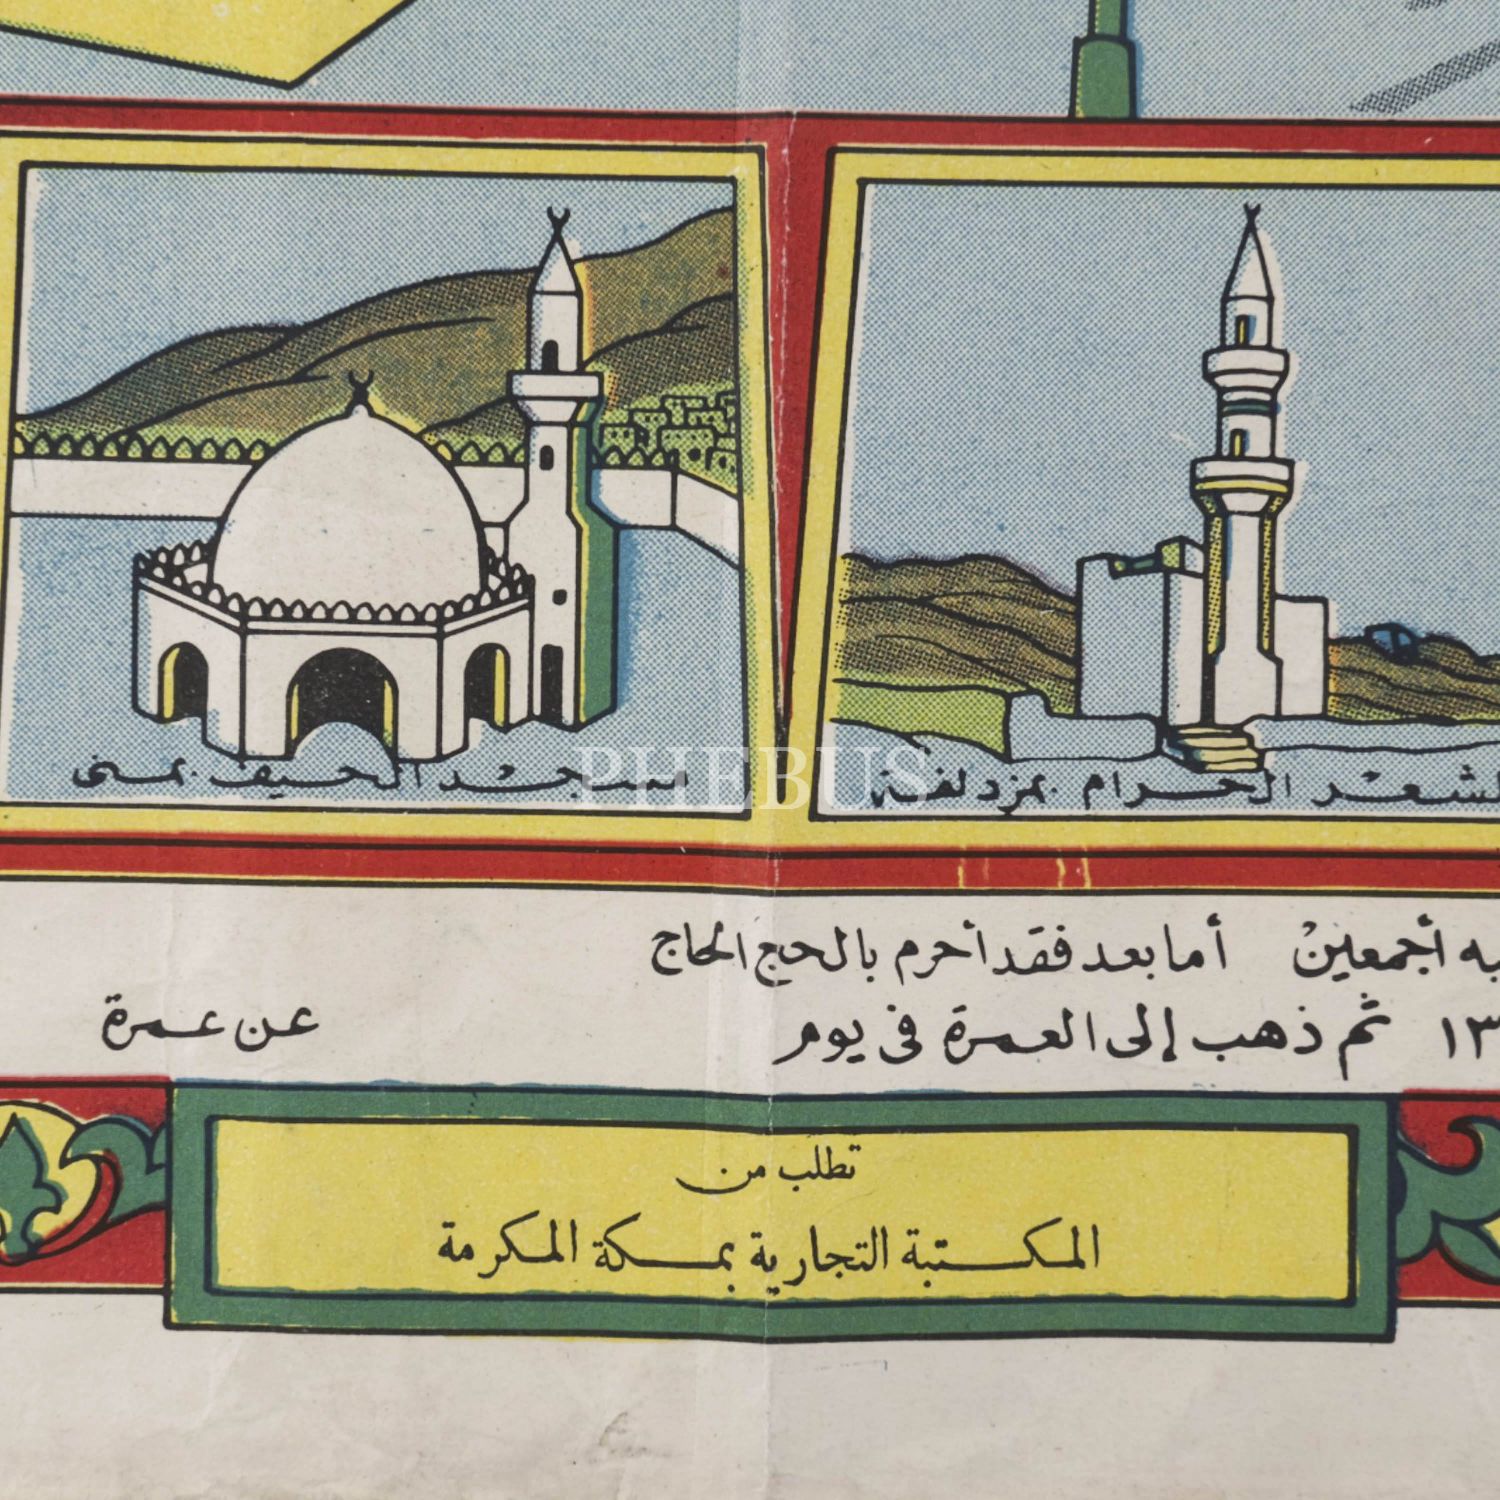 المشعر الحرام بمزدلفة
لمسجد الخيف بمنى
به أجمعين أما بعد فقد أحرم بالحج الحاج
١٣ ثم ذهب إلى العمرة في يوم
عن عمرة
تطلب من
المكتبة التجارية بمكة المكرمة
PHEBUS